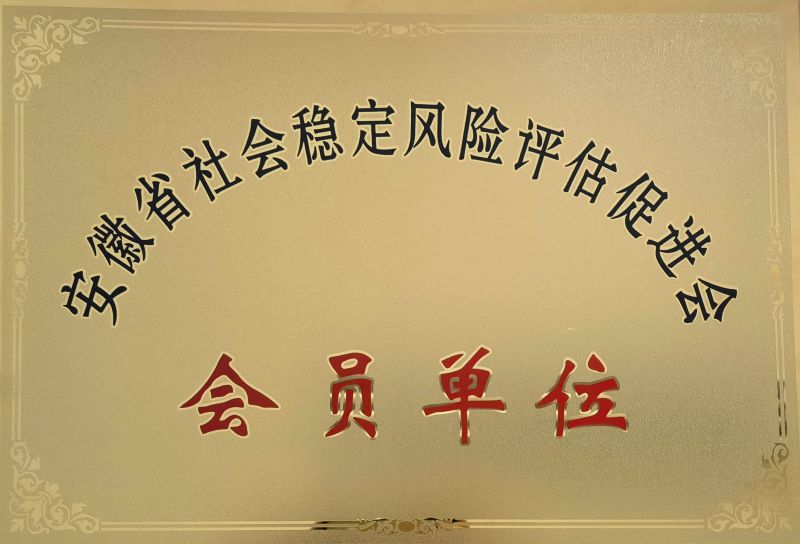 安徽省社会稳定风险评估促进会
会员单位